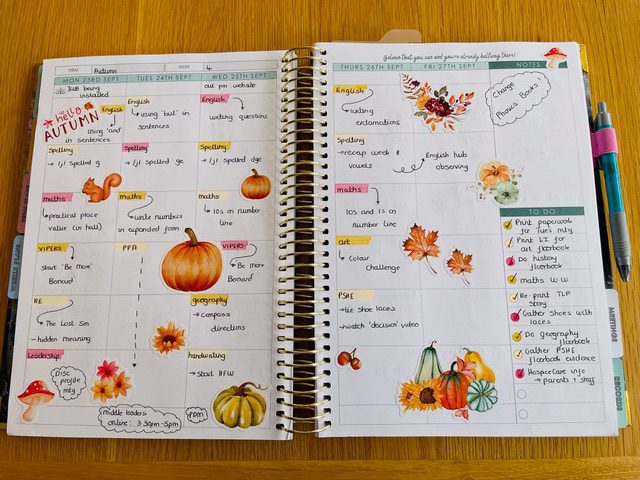 TERM Autumn WEEK 4
MON 23RD SEPT
TUES 24TH SEPT
WED 25TH SEPT
IWB being
installed
out pm website
hello
AUTUMN
English
using 'and'
in sentences
English
using 'but' in
sentences
English
writing questions
Spelling
→ /j/ spelled g
Spelling
→ /j/ spelled ge
Spelling
→ /j/ spelled dge
maths
→practical place
value (in hall)
maths
write numbers
in expanded form
maths
→ 10s on number
line
VIPERS
start 'Be More'
Bernard'
PPA
VIPERS
Be more
Bernard'
RE
→ The Lost Son
→hidden meaning
geography
→compass
directions
Leadership
Disc
profile
mtg
handwriting
→ start HFW
middle leaders
online: 3:30pm-5pm
PDM
believe that you can and you're already halfway there!
THURS 26TH SEPT
FRI 27TH SEPT
NOTES
English
writing
exclamations
Change
Phonics Books!
Spelling
→recap week &
vowels
English hub
observing
maths
10s and 1s on
number line
art
Colour
challenge
PSHE
→tie shoe laces
→watch 'decision' video
TO DO
Print paperwork
for Tues mtg
Print LI for
art floorbook
Do history
floorbook
maths W.W
Re-print TLP
Story
Gather Shoes with
laces
Do geography
floorbook
Gather PSHE
floorbook evidence
HospiceCare info
→ parents & staff
MEETINGS
RECORDS